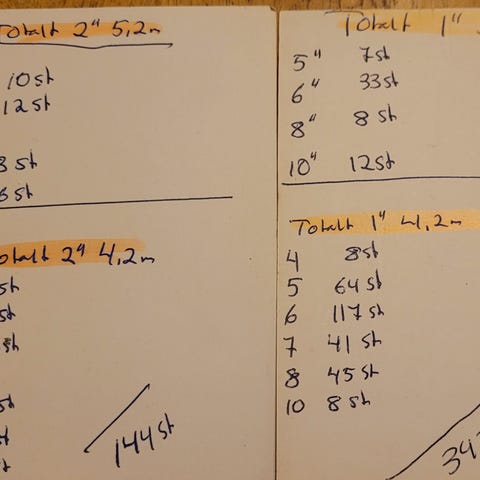 Totalt 2" 5,2m
10st
12st
8st
8st
Totalt 2" 4,2m
st
st
st
st
st
st
144st
Totalt 1"
5" 7st
6" 33st
8" 8st
10" 12st
Totalt 1" 4,2m
4 8st
5 64st
6 117st
7 41st
8 45st
10 8st